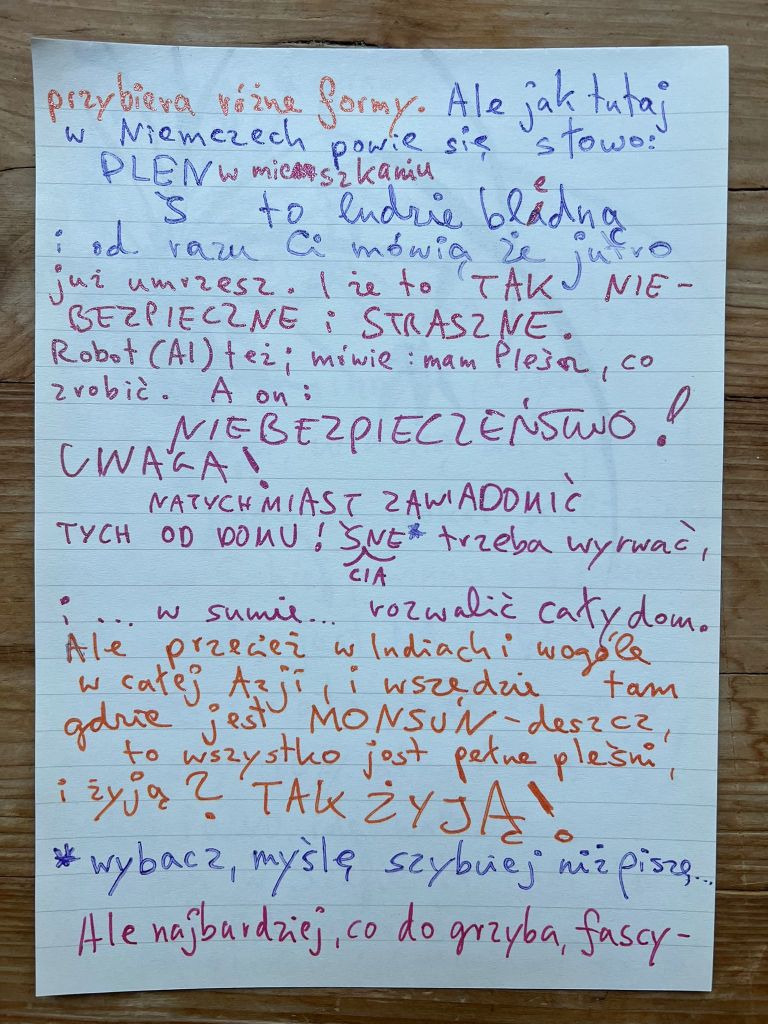 przybiera różne formy. Ale jak tutaj
w Niemczech powie się słowo:
PLEŃ w mieszkaniu
Ś to ludzie blędną
i od razu Ci mówią że jutro
już umrzesz. I że to TAK NIE-
BEZPIECZNE i STRASZNE.
Robot (AI) też; mówie: mam Pleśń, co
zrobić. A on:
NIEBEZPIECZEŃSTWO!
UWAGA!
NATYCHMIAST ZAWIADOMIĆ
TYCH OD DOMU! ŚNE* trzeba wyrwać,
CIA
i ... w sumie... rozwalić cały dom.
Ale przecież w Indiach i wogóle
w całej Azji, i wszędzie tam
gdzie jest MONSUN-deszcz,
to wszystko jest pełne pleśni,
i żyją? TAK ŻYJĄ!
* wybacz, myślę szybciej niż piszę...
Ale najbardziej, co do grzyba, fascy-